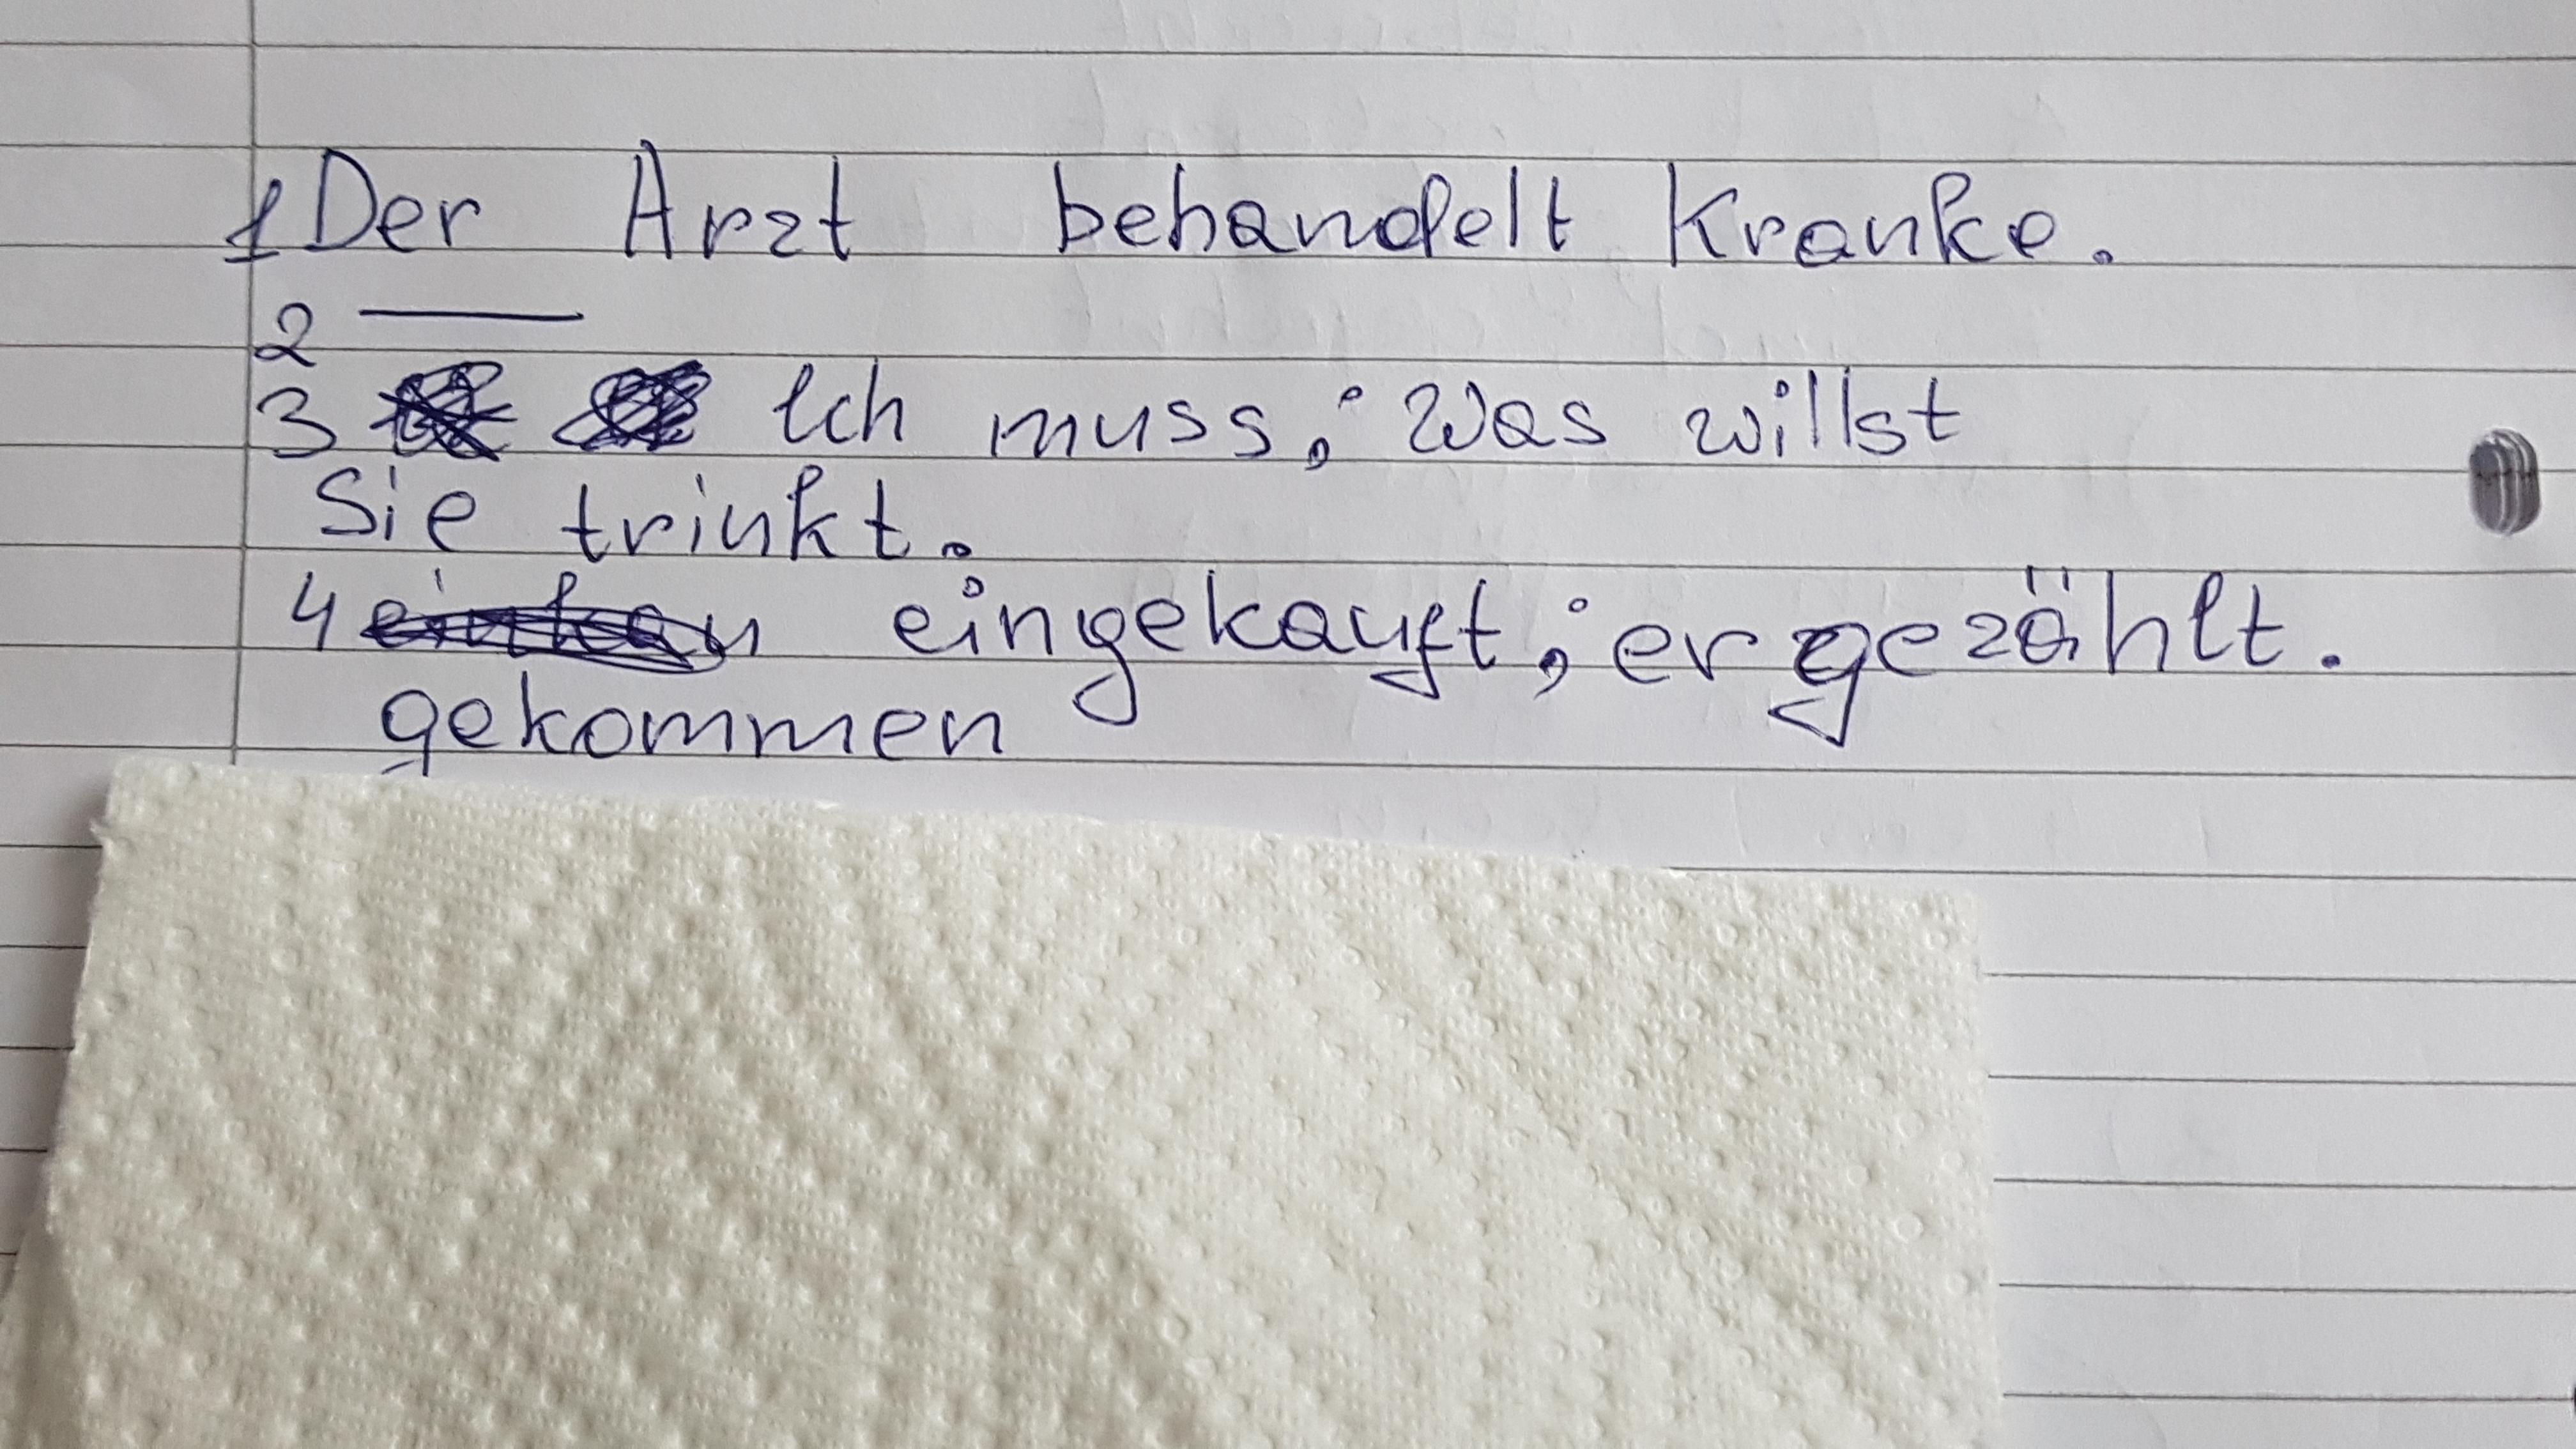 1 Der Arzt behandelt Kranke.
2 —
3 Ich muss; Was willst
Sie trinkt.
4 eingekauft; ergezählt.
gekommen